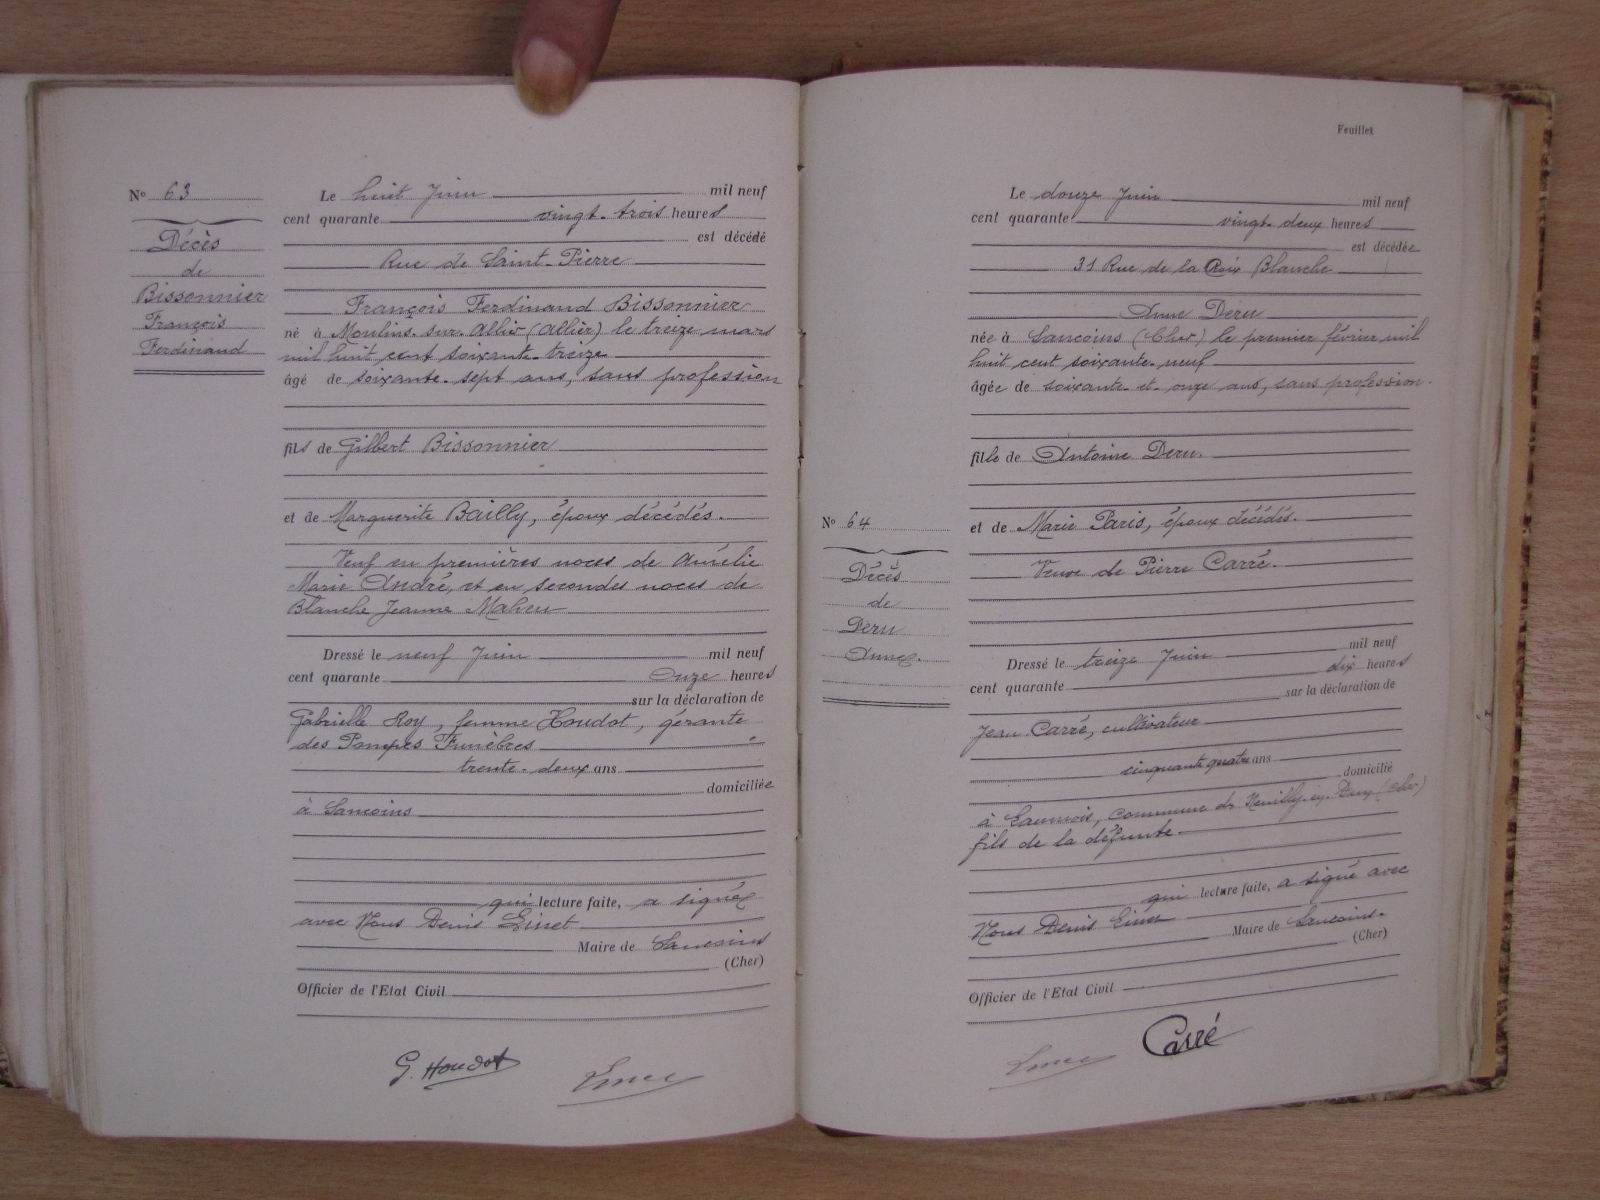 N° 63
Décès
de
Bissonnier
François
Ferdinand
Le huit Juin mil neuf
cent quarante vingt-trois heures
est décédé
Rue de Saint-Pierre
François Ferdinand Bissonnier
né à Moulins-sur-Allier (Allier) le treize mars
mil huit cent soixante-treize
âgé de soixante-sept ans, sans profession
fils de Gilbert Bissonnier
et de Marguerite Bailly, époux décédés.
Veuf en premières noces de Amélie
Marie André, et en secondes noces de
Blanche Jeanne Maheu
Dressé le neuf Juin mil neuf
cent quarante Onze heures
sur la déclaration de
Gabrielle Roy, femme Houdot, gérante
des Pompes Funèbres
trente-deux ans
domiciliée
à Sancoins
qui lecture faite, a signé
avec Nous Denis Linet
Maire de Sancoins
(Cher)
Officier de l'Etat Civil
G. Houdot
Feuillet
Le douze Juin mil neuf
cent quarante vingt-deux heures
est décédée
31 Rue de la Croix Blanche
Anne Deru
née à Sancoins (Cher) le premier février mil
huit cent soixante-neuf
âgée de soixante-et-onze ans, sans profession.
fille de Antoine Deru.
N° 64
Décès
de
Deru
Anne.
et de Marie Paris, époux décédés.
Veuve de Pierre Carré.
Dressé le treize Juin mil neuf
cent quarante dix heures
sur la déclaration de
Jean Carré, cultivateur
cinquante quatre ans
domicilié
à commune de Neuilly-en-Dun (Cher)
fils de la défunte.
qui lecture faite, a signé avec
Nous Denis Linet Maire de Sancoins.
(Cher)
Officier de l'Etat Civil
Carré